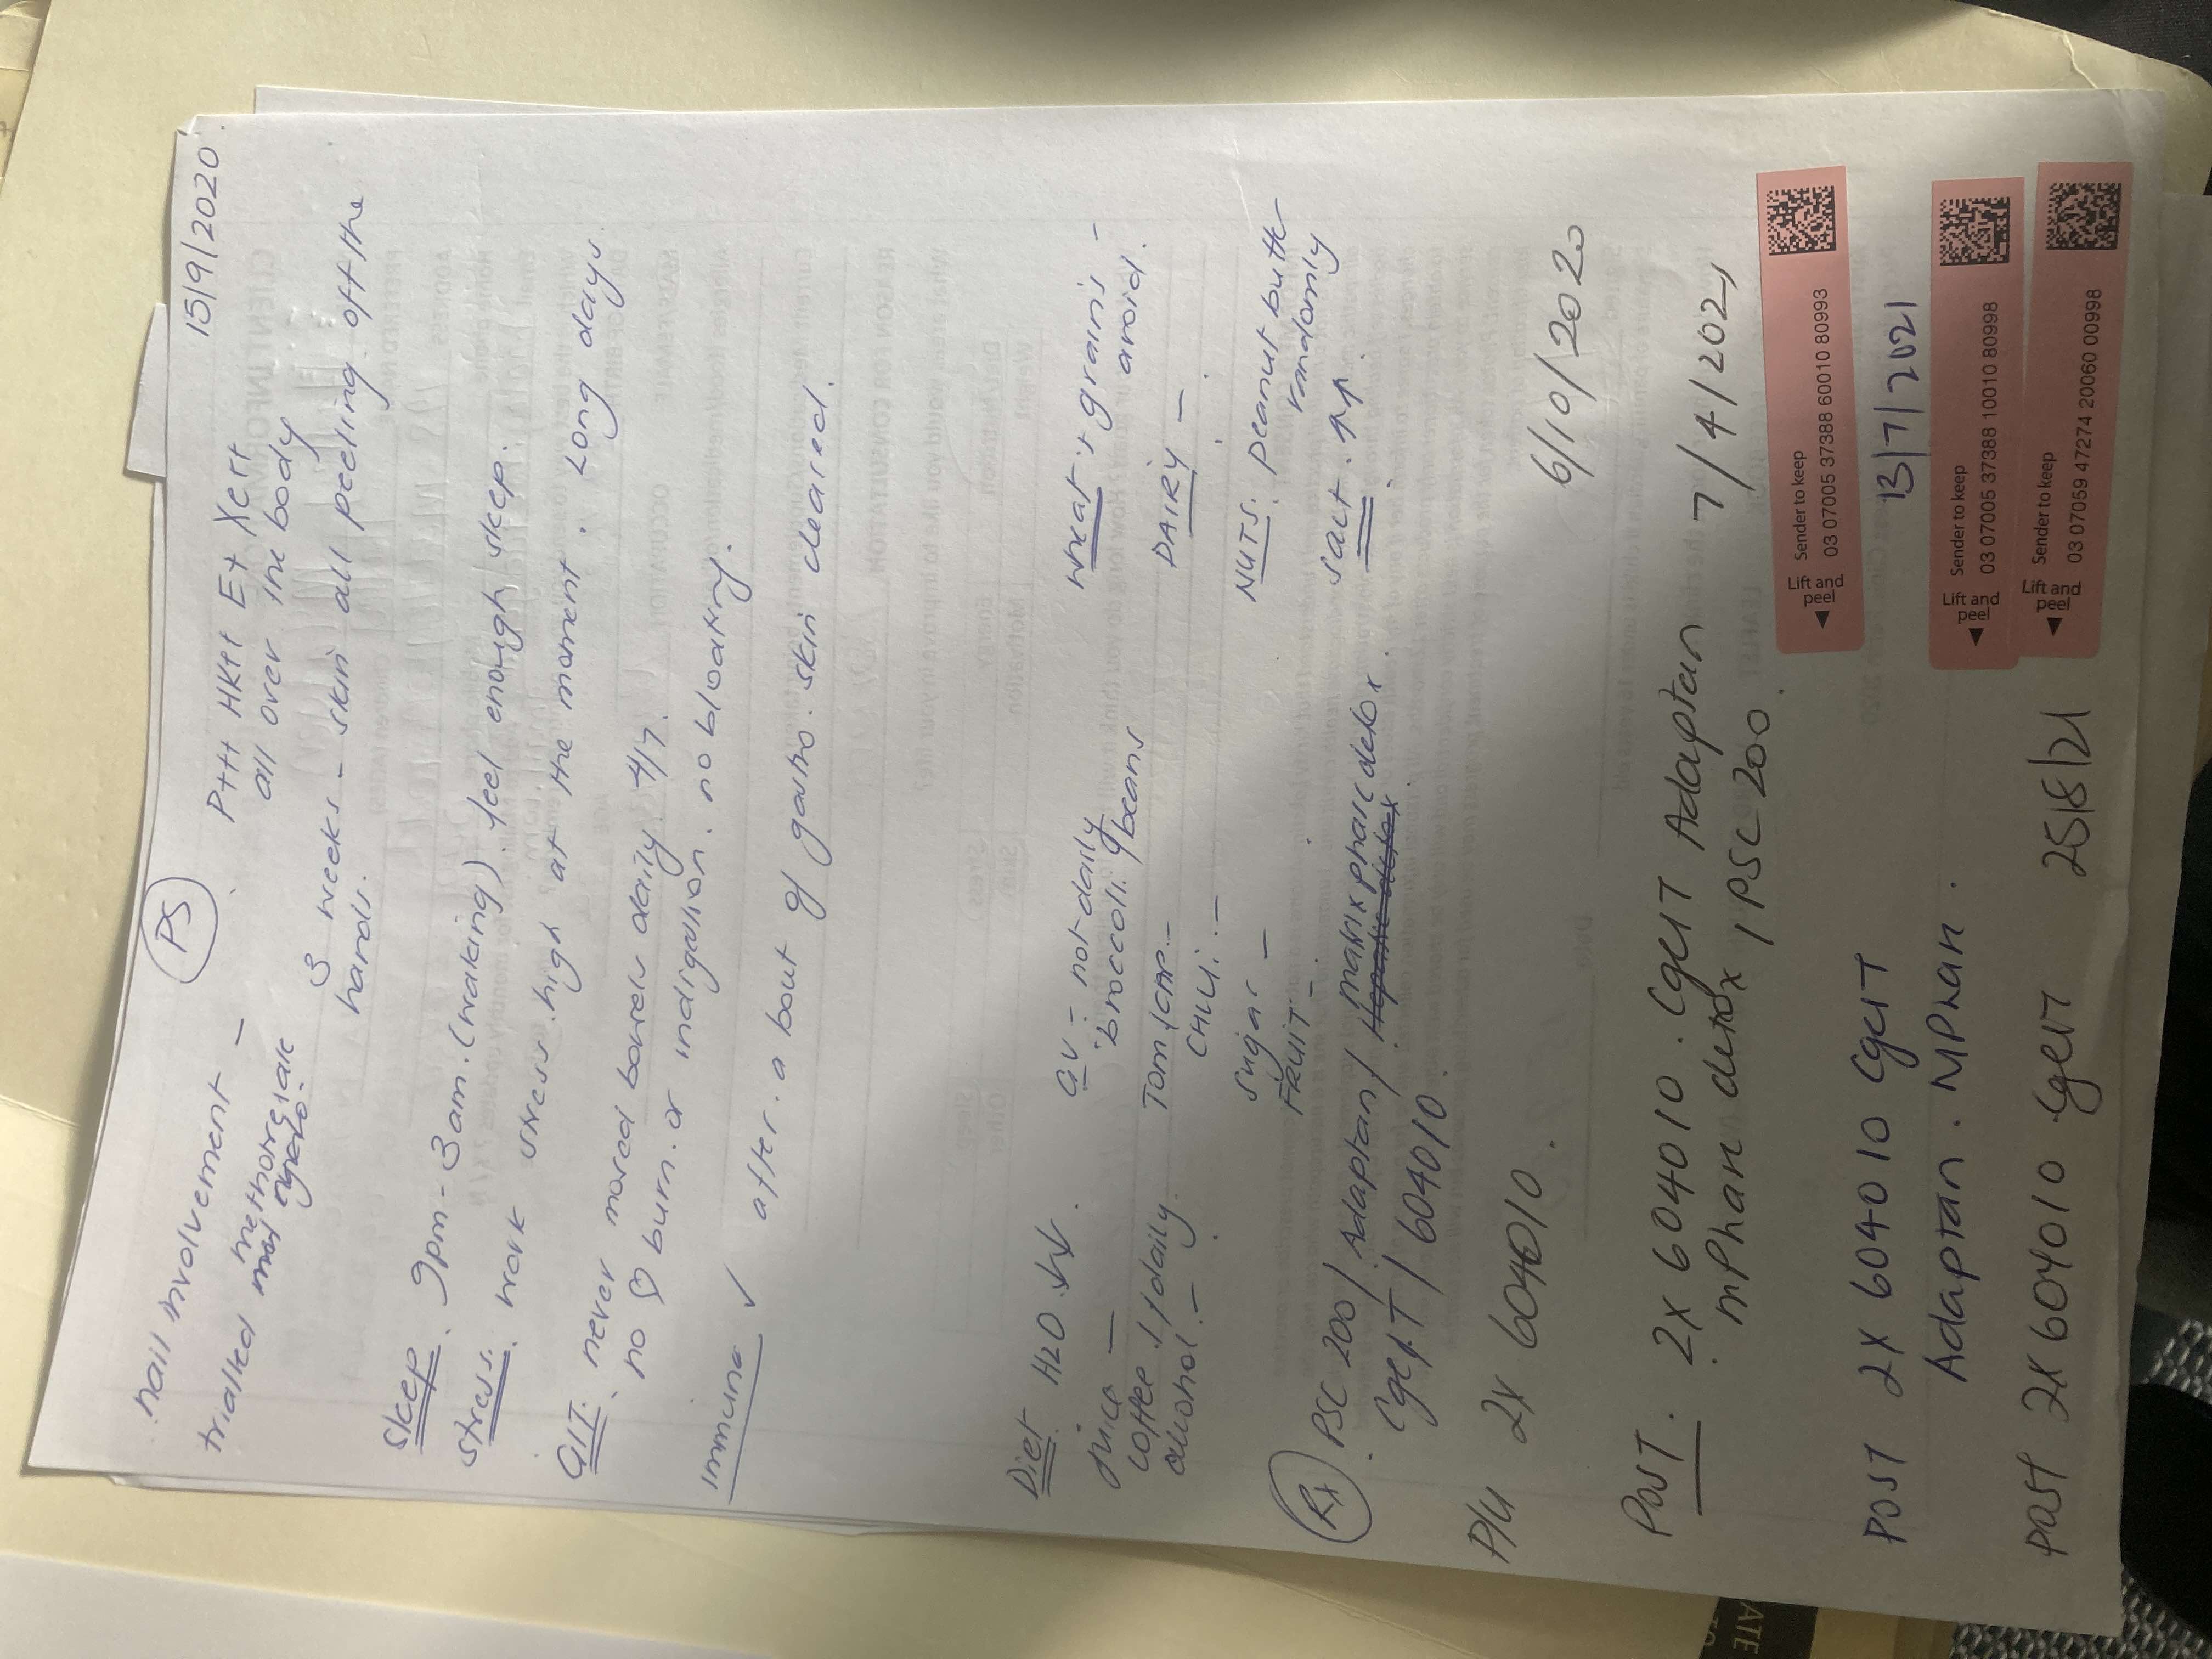 PS 15/9/2020
nail involvement - P+++ HK+++ E+ Xer+
trialled methotrexate all over the body
3 weeks - skin all peeling off the
hands.
Sleep. 9pm - 3am. (waking) feel enough sleep.
Stress. work stress. high at the moment. Long days.
GIT. never moved bowels daily 4/7.
no ♡ burn. or indigestion. no bloating.
immune ✓ after a bout of gastro. skin cleared.
Diet H2O ↓↓. GV - not daily wheat, grains -
juice - broccoli. g beans avoid.
coffee 1/daily. Tom/cap. - DAIRY -
alcohol. - CHILLI. -
sugar - NUTS. Peanut butter
FRUIT - randomly
salt. ↑↑
Rx PSC 200/ Adaptan/ matrix phase detox
CgeIT/ 604010
P/U 2x 604010. 6/10/2020
POST. 2x 604010. CgEIT Adaptan 7/4/2021
mPhan detox, PSC 200.
Lift and peel
Sender to keep
03 07005 37388 60010 80993
POST 2x 604010 CgEIT 13/7/2021
Adaptan. MPhan.
Lift and peel
Sender to keep
03 07005 37388 10010 80998
POST 2x 604010 CgEIT 25/8/21
Lift and peel
Sender to keep
03 07059 47274 20060 00998
ATE